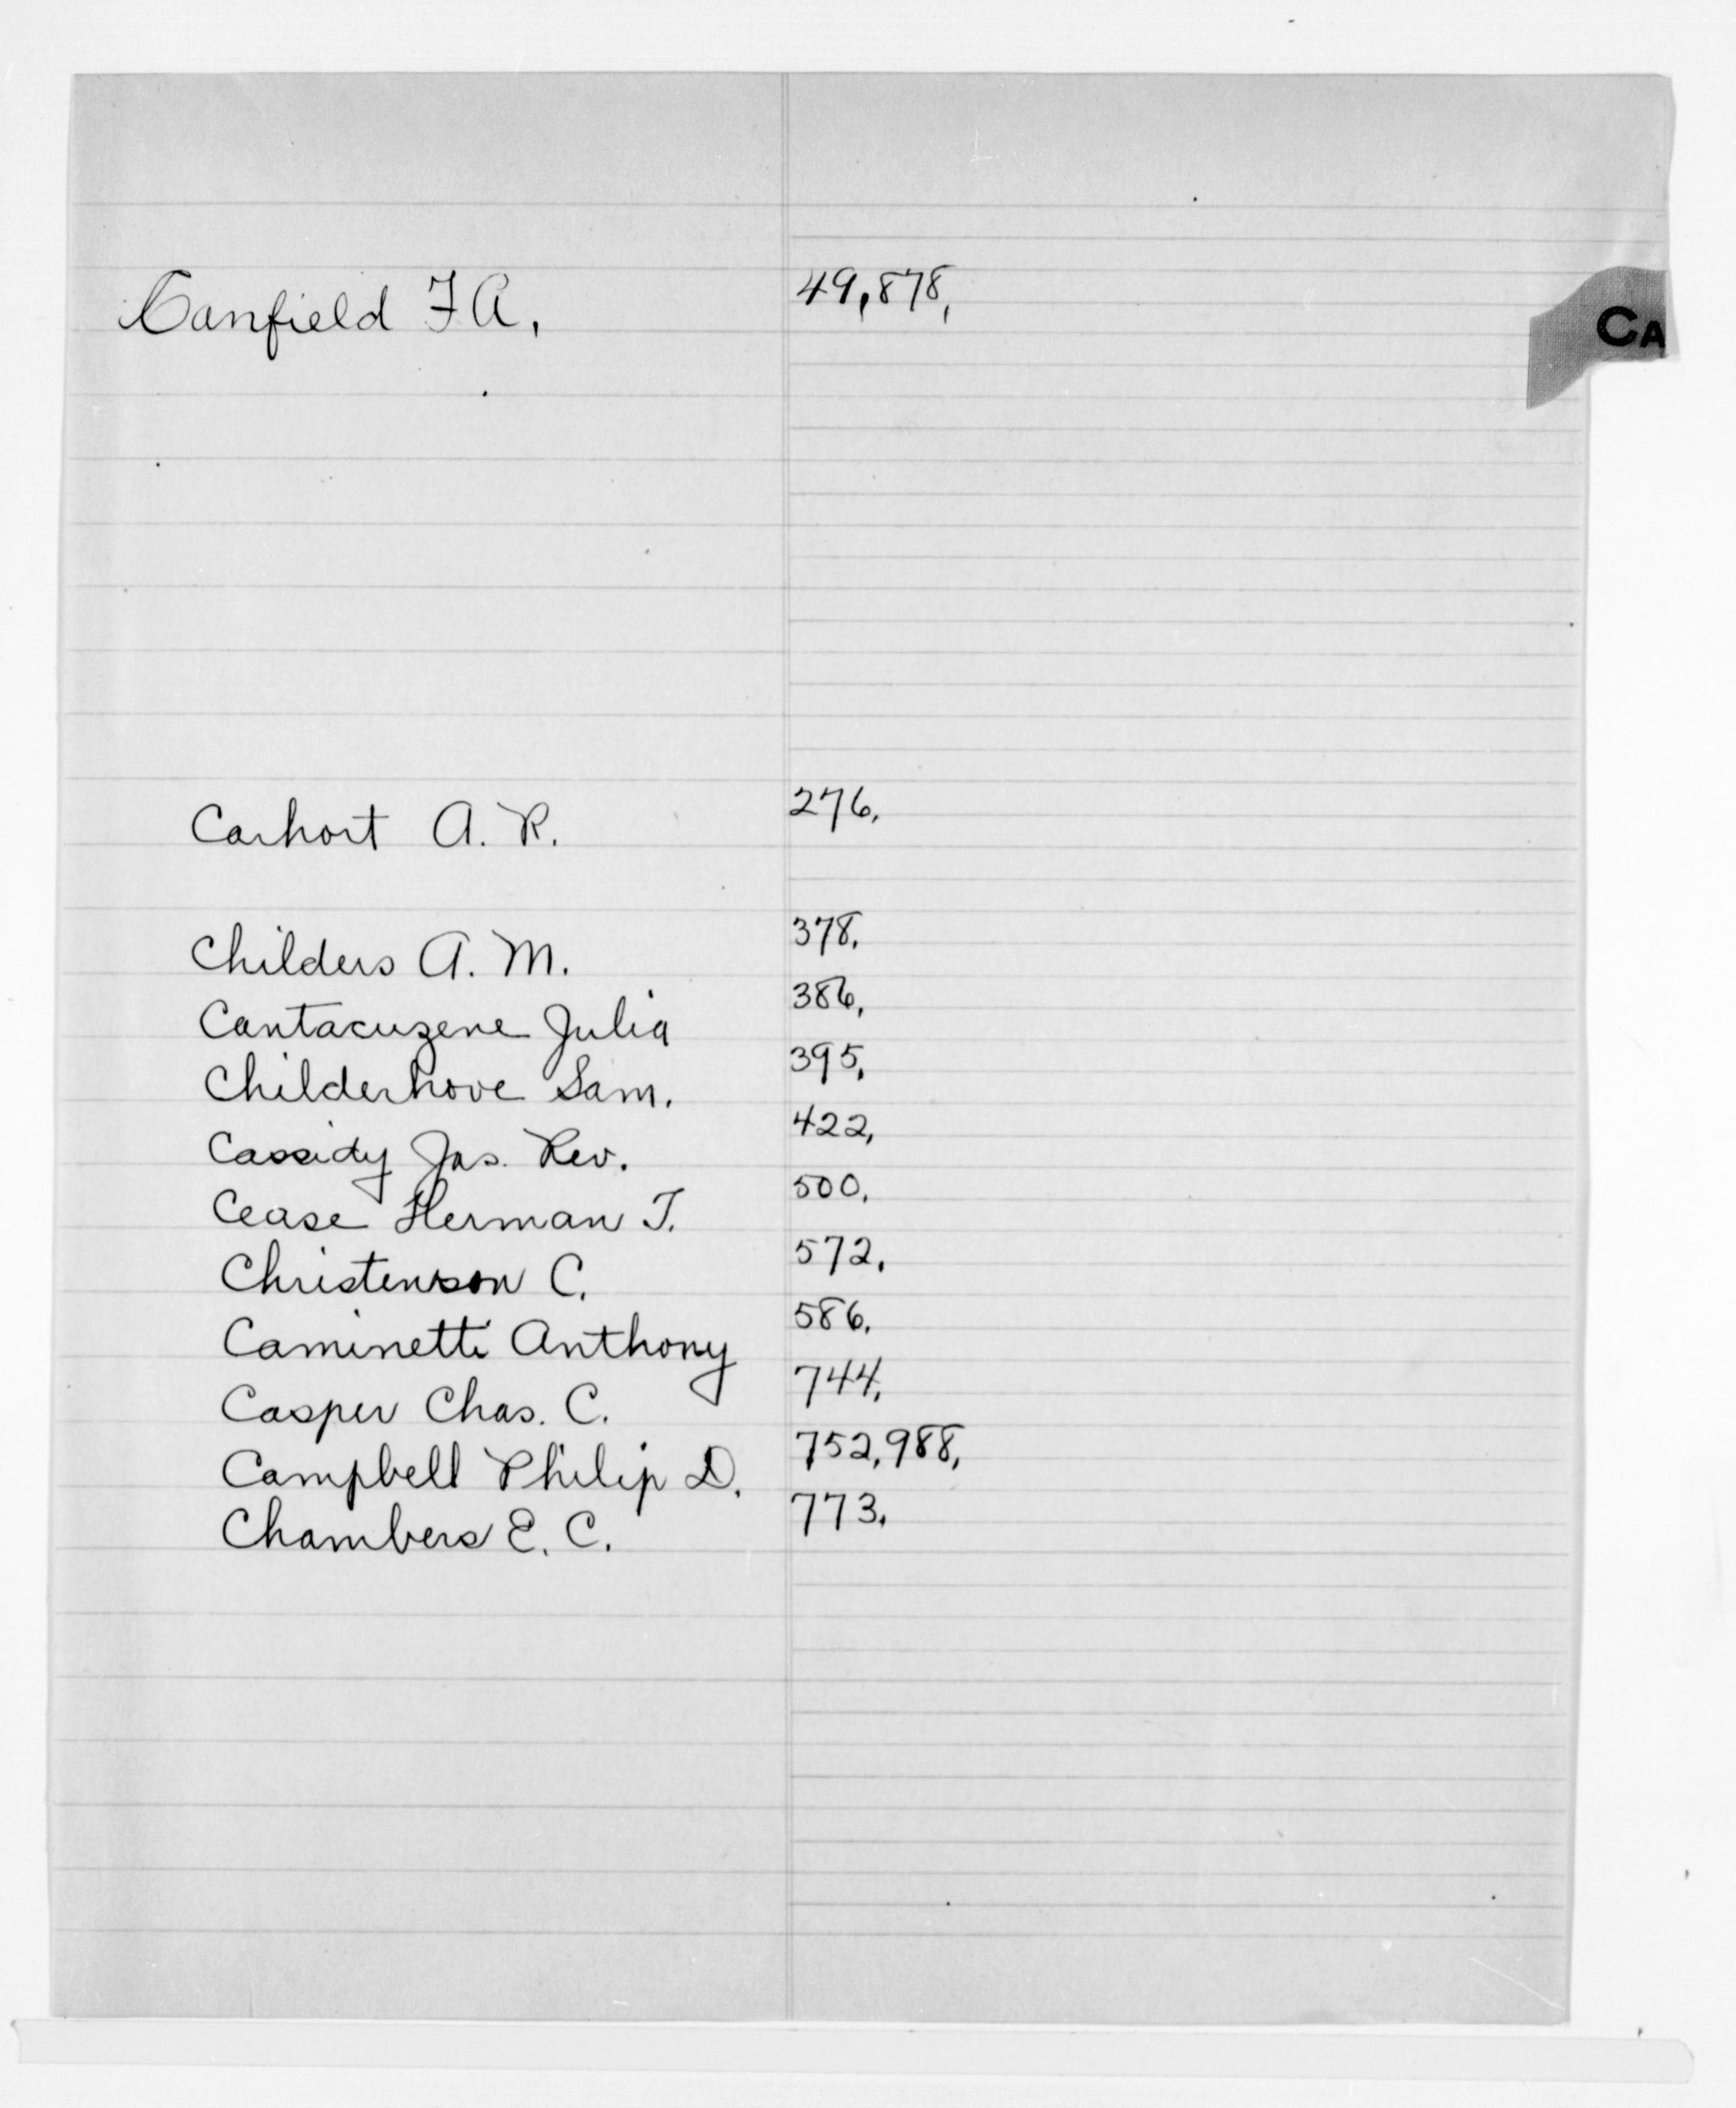 Canfield F A, 49,878,
CA
Carhart A. R. 276,
Childers A. M. 378,
Cantacuzene Julia 386,
Childerhove Sam. 395,
Cassidy Jas. Rev. 422,
Cease Herman T. 500,
Christenson C. 572,
Caminetti Anthony 586,
Casper Chas. C. 744,
Campbell Philip D. 752,988,
Chambers E. C. 773,